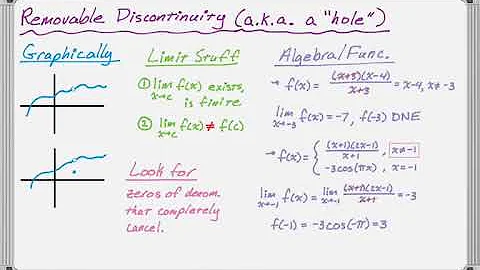 Removable Discontinuity (a.k.a. a "hole")
Graphically
Limit Stuff
① lim x→c f(x) exists,
is finite
② lim x→c f(x) ≠ f(c)
Look for
zeros of denom.
that completely
cancel.
Algebra/Func.
→ f(x) = (x+3)(x-4)/x+3 = x-4, x≠-3
lim x→-3 f(x) = -7, f(-3) DNE
→ f(x) = { (x+1)(2x-1)/x+1 , x≠-1
-3cos(πx) , x=-1
lim x→-1 f(x) = lim x→-1 (x+1)(2x-1)/x+1 = -3
f(-1) = -3cos(-π) = 3